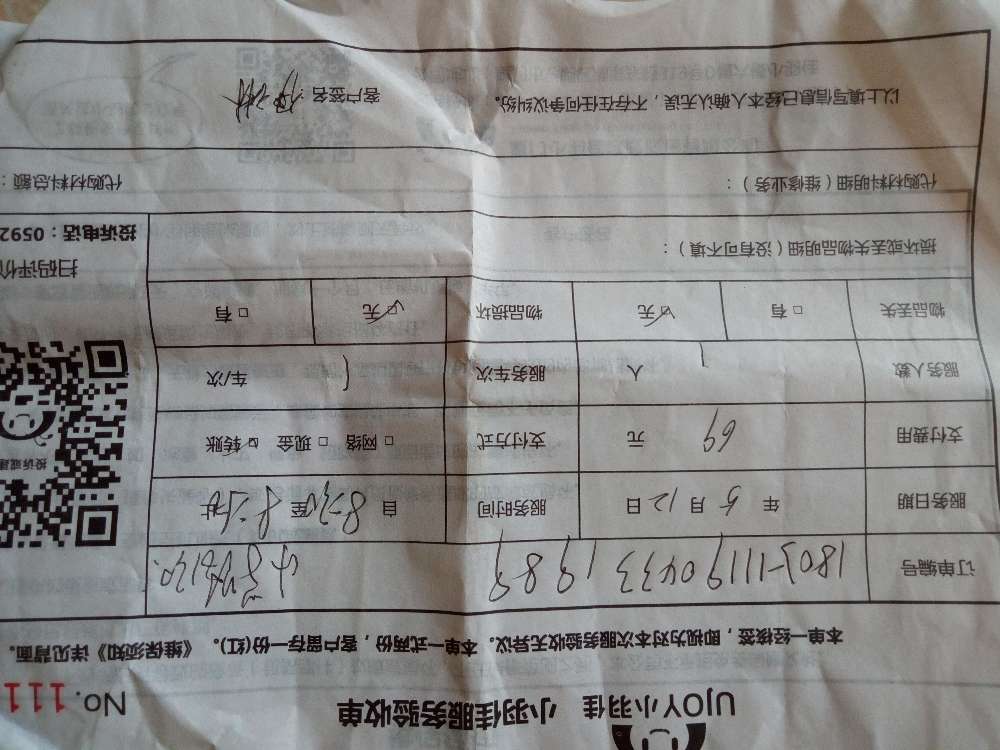 UJOY小羽佳 小羽佳服务验收单 No. 111
本单一经核签，即视为对本次服务验收无异议。本单一式两份，客户留存一份(红)。《维保须知》详见背面。
订单编号
服务日期 年 5 月 12 日 服务时间 自 8:30 至
支付费用 69 元 支付方式 □ 网络 □ 现金 ☑ 转账
服务人数 1 人 服务车次 1 车/次
物品丢失 □ 有 ☑ 无 物品损坏 ☑ 无 □ 有
损坏或丢失物品明细（没有可不填）：
代购材料明细（维修业务）： 代购材料总额：
以上填写信息已经本人确认无误，不存在任何争议纠纷。 客户签名：
投诉或建
扫码评价
投诉电话：0592